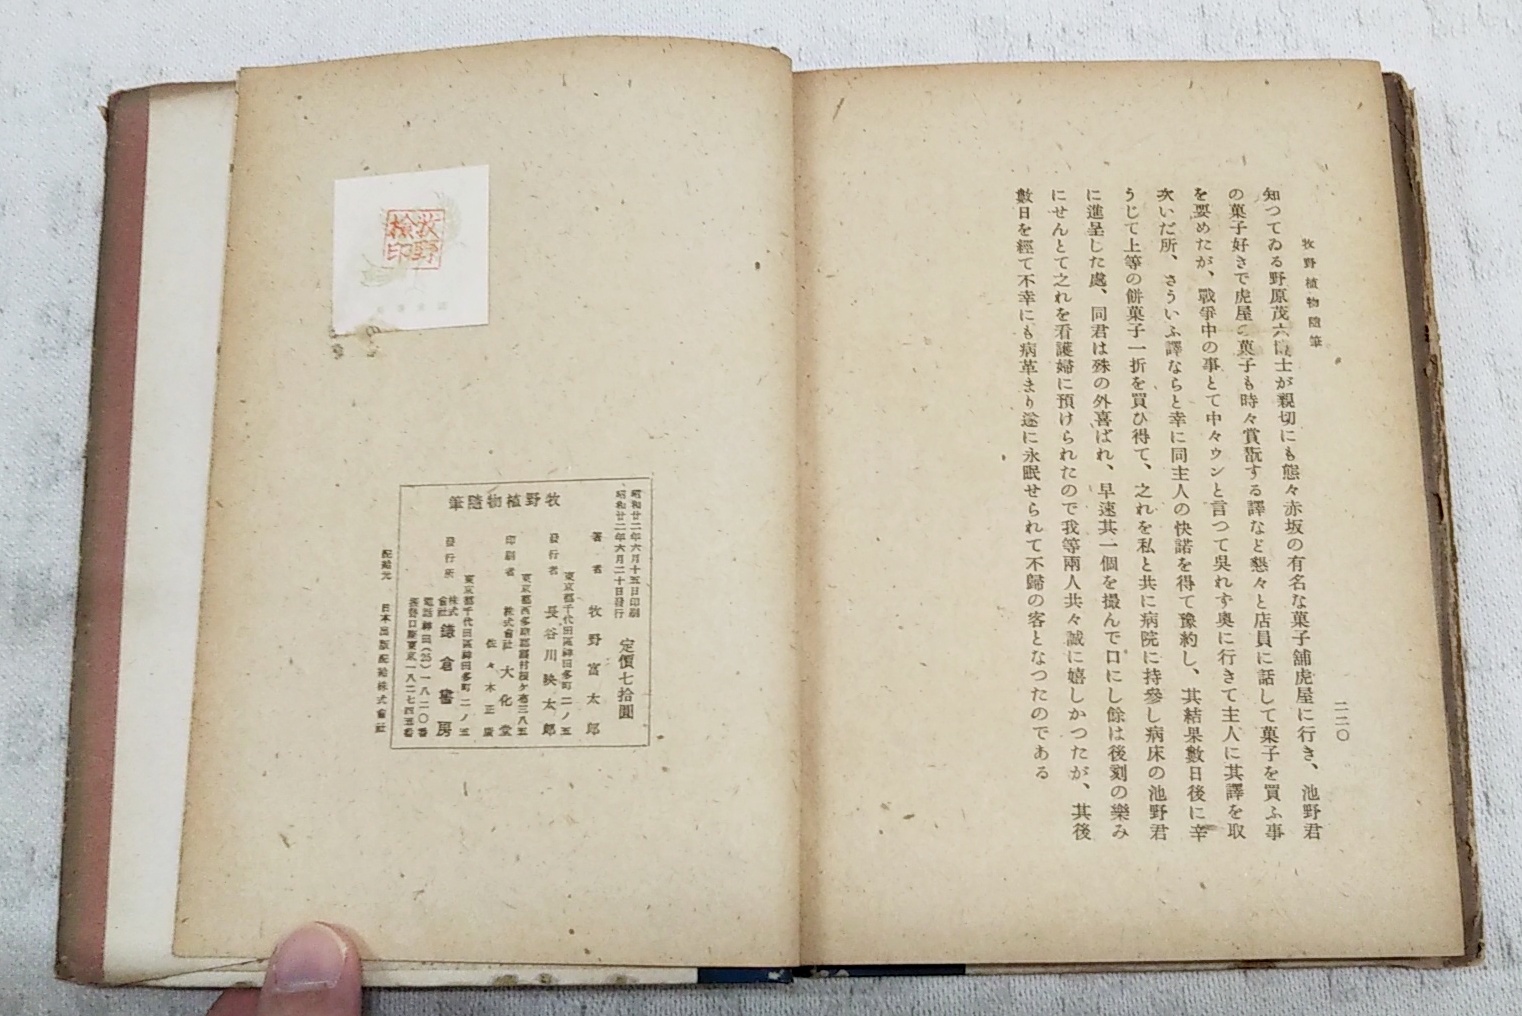 牧野植物隨筆
二二〇
知つてゐる野原茂六博士が親切にも態々赤坂の有名な菓子舖虎屋に行き、池野君
の菓子好きで虎屋の菓子も時々賞翫する譯など懇々と店員に話して菓子を買ふ事
を要めたが、戰爭中の事とて中々ウンと言つて呉れず奥に行きて主人に其譯を取
次いだ所、さういふ譯ならと幸に同主人の快諾を得て豫約し、其結果數日後に辛
うじて上等の餅菓子一折を買ひ得て、之れを私と共に病院に持參し病床の池野君
に進呈した處、同君は殊の外喜ばれ、早速其一個を撮んで口にし餘は後刻の樂み
にせんとて之れを看護婦に預けられたので我等兩人共々誠に嬉しかつたが、其後
數日を經て不幸にも病革まり遂に永眠せられて不歸の客となつたのである
牧野
檢印
昭和廿二年六月十五日印刷
昭和廿二年六月二十日發行
定價七拾圓
牧野植物隨筆
著者 牧野富太郎
東京都千代田區神田多町二ノ五
發行者 長谷川映太郎
印刷者 株式會社 大化堂
佐々木正
東京都千代田區神田多町二ノ五
發行所 株式會社 鎌倉書房
電話神田(25)一八二〇番
振替口座東京一八二七四五番
配給元 日本出版配給株式會社